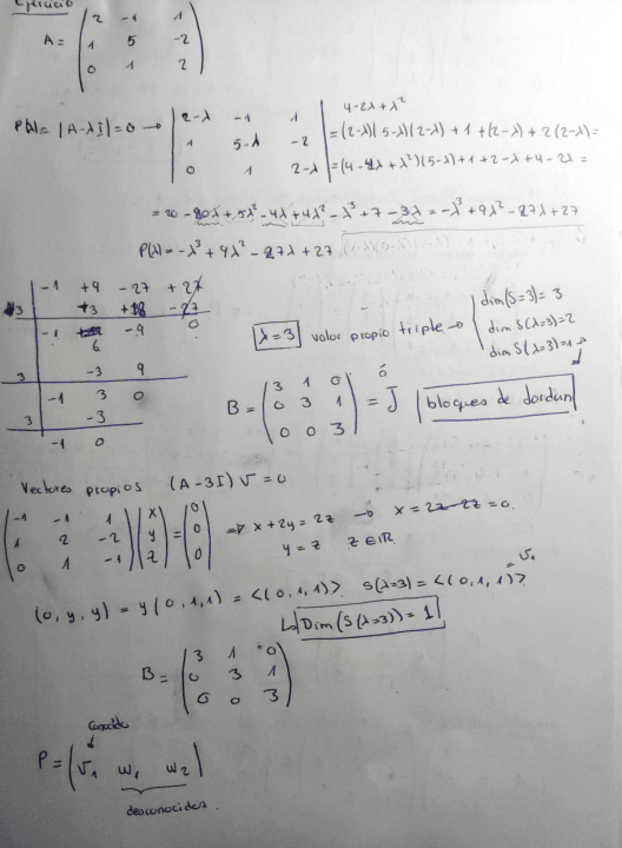 Ejercicio
A = ( 2 -1 1
1 5 -2
0 1 2 )
4-2λ+λ²
P(λ) = |A-λI| = 0 → | 2-λ -1 1 |
| 1 5-λ -2 | = (2-λ)(5-λ)(2-λ) + 1 + (2-λ) + 2(2-λ) =
| 0 1 2-λ | = (4-4λ+λ²)(5-λ) + 1 + 2 - λ + 4 - 2λ =
= 20 - 20λ + 5λ² - 4λ + 4λ² - λ³ + 7 - 3λ = -λ³ + 9λ² - 27λ + 27
P(λ) = -λ³ + 9λ² - 27λ + 27
-1 +9 -27 +27
3 -3 +18 -27
-1 6 -9 0
3 -3 9
-1 3 0
3 -3
-1 0
λ=3 valor propio triple → { dim(S=3) = 3
dim S(λ=3) = 2
dim S(λ=3) = 1 →
ó
B = ( 3 1 0
0 3 1
0 0 3 ) = J bloques de Jordan
Vectores propios (A-3I) v = 0
( -1 -1 1
1 2 -2
0 1 -1 ) ( x
y
z ) = ( 0
0
0 ) ⇒ x + 2y = 2z → x = 2z - 2z = 0.
y = z z ∈ ℝ
(0, y, y) = y(0,1,1) = <(0,1,1)>. S(λ=3) = <(0,1,1)> = v₁
↳ Dim(S(λ=3)) = 1
B = ( 3 1 0
0 3 1
0 0 3 )
conocido
P = ( v₁ w₁ w₂ )
desconocidos.